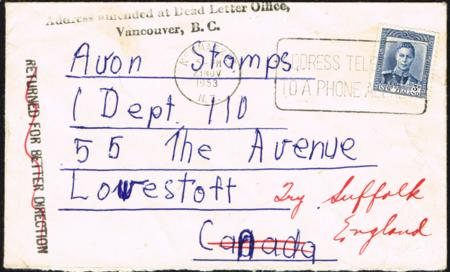 Address amended at Dead Letter Office,
Vancouver, B. C.
NOV
1953
N.Z.
ADDRESS TELE
TO A PHONE
NEW ZEALAND
RETURNED FOR BETTER DIRECTION
Avon Stamps
1 Dept. 110
55 The Avenue
Lowestoft
Canada
Try Suffolk
England